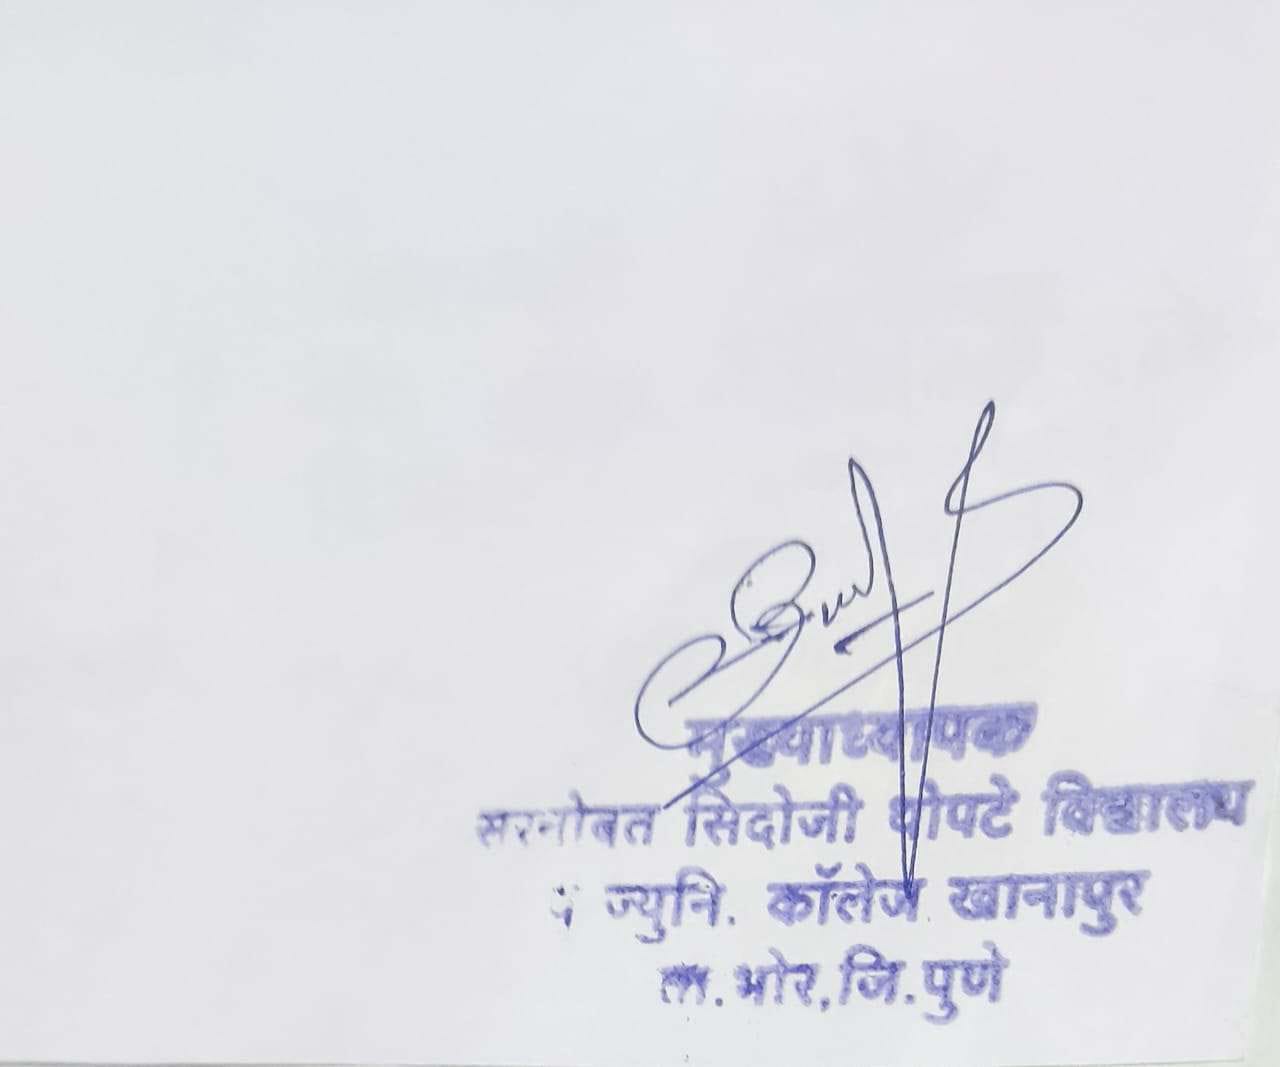 मुख्याध्यापक
सरनोबत सिदोजी थोपटे विद्यालय
व ज्युनि. कॉलेज खानापुर
ता. भोर, जि. पुणे